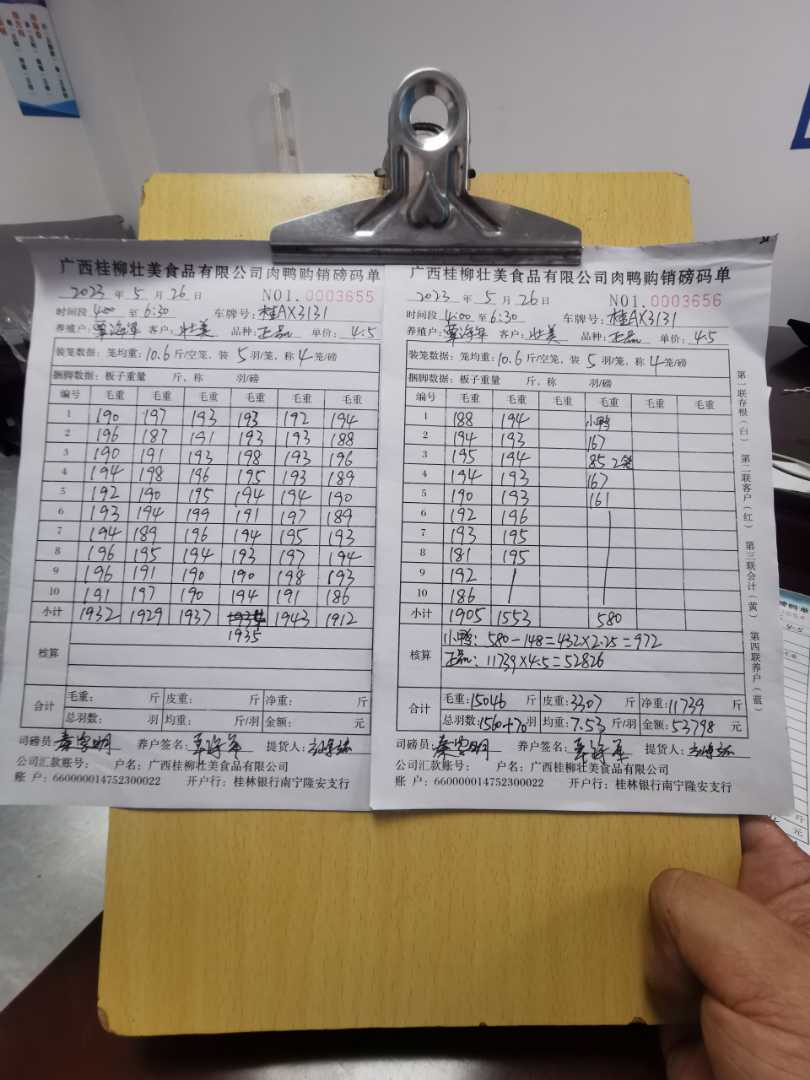 广西桂柳壮美食品有限公司肉鸭购销磅码单
2023 年 5 月 26 日 NO1.0003655
时间段 4:00 至 6:30 车牌号: 桂AX3131
养殖户: 覃海军 客户: 壮美 品种: 正品 单价: 4.5
装笼数据: 笼均重: 10.6 斤/空笼, 装 5 羽/笼, 称 4 笼/磅
捆脚数据: 板子重量 斤, 称 羽/磅
编号 毛重 毛重 毛重 毛重 毛重 毛重
1 190 197 193 193 192 194
2 196 187 191 193 193 188
3 190 191 193 198 193 196
4 194 198 196 195 193 189
5 192 190 195 194 194 190
6 193 194 199 191 197 189
7 194 189 196 194 195 193
8 196 195 194 193 197 194
9 196 191 190 190 198 193
10 191 197 190 194 191 186
小计 1932 1929 1937 1943 1912
1935
核算
合计 毛重: 斤 皮重: 斤 净重: 斤
总羽数: 羽 均重: 斤/羽 金额: 元
司磅员: 养户签名: 覃海军 提货人:
公司汇款账号: 户名: 广西桂柳壮美食品有限公司
账 户: 660000014752300022 开户行: 桂林银行南宁隆安支行
广西桂柳壮美食品有限公司肉鸭购销磅码单
2023 年 5 月 26 日 NO1.0003656
时间段 4:00 至 6:30 车牌号: 桂AX3131
养殖户: 覃海军 客户: 壮美 品种: 正品 单价: 4.5
装笼数据: 笼均重: 10.6 斤/空笼, 装 5 羽/笼, 称 4 笼/磅
捆脚数据: 板子重量 斤, 称 羽/磅
编号 毛重 毛重 毛重 毛重 毛重 毛重
1 188 194 小鸭
2 194 193 167
3 195 194 85 2笼
4 194 193 167
5 190 193 161
6 192 196
7 193 195
8 181 195
9 192
10 186
小计 1905 1553 580
核算 小鸭: 580-148=432×2.25=972
正品: 11739×4.5=52826
合计 毛重: 15046 斤 皮重: 3307 斤 净重: 11739 斤
总羽数: 1560+70 羽 均重: 7.53 斤/羽 金额: 53798 元
司磅员: 养户签名: 覃海军 提货人:
公司汇款账号: 户名: 广西桂柳壮美食品有限公司
账 户: 660000014752300022 开户行: 桂林银行南宁隆安支行
第一联存根(白) 第二联客户(红) 第三联会计(黄) 第四联养户(蓝)